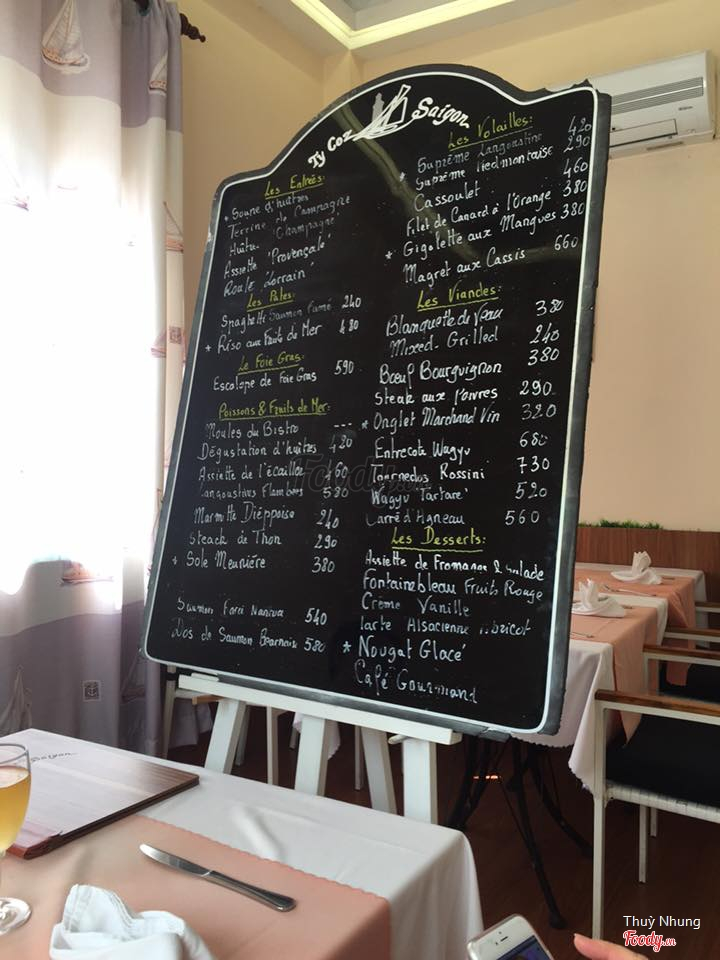 Ty Coz Saigon
Les Entrées:
* Soupe d'huîtres
Terrine de Campagne
Huître 'Champagne'
Assiette 'Provençale'
Roulé 'Lorrain'
Les Pates:
Spaghetti Saumon Fumé 240
* Riso aux Fruits de Mer 480
Le Foie Gras:
Escalope de Foie Gras 590
Poissons & Fruits de Mer:
Moules du Bistro ---
Dégustation d'huîtres 420
Assiette de l'écailler 460
Langoustins Flambés 580
Marmitte Dièppoise 240
Steack de Thon 290
* Sole Meuniére 380
Saumon 540
Dos de Saumon Bearnaise 580
Les Volailles:
* Suprême Langoustine 420
Suprême Piedmontaise 290
Cassoulet 460
Filet de Canard à l'Orange 380
* Gigolette aux Mangues 380
Magret aux Cassis 660
Les Viandes:
Blanquette de Veau 380
Mixed-Grilled 240
Bœuf Bourguignon 380
Steak aux Poivres 290
* Onglet Marchand Vin 320
Entrecote Wagyu 680
Tournedos Rossini 730
Wagyu Tartare' 520
Carré d'Agneau 560
Les Desserts:
Assiette de Fromages & Salade
Fontainebleau Fruits Rouge
Crème Vanille
Tarte Alsacienne Abricot
* Nougat Glacé
Café Gourmand
Saigon
Foody.vn
Thuỳ Nhung
Foody.vn